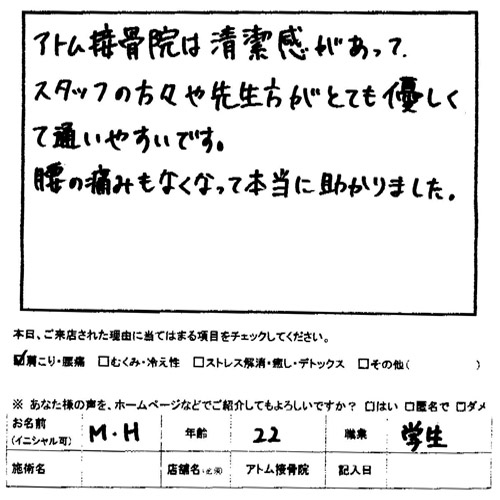 アトム接骨院は清潔感があって、
スタッフの方々や先生方がとても優しく
て通いやすいです。
腰の痛みもなくなって本当に助かりました。
本日、ご来店された理由に当てはまる項目をチェックしてください。
☑肩こり・腰痛 □むくみ・冷え性 □ストレス解消・癒し・デトックス □その他( )
※ あなた様の声を、ホームページなどでご紹介してもよろしいですか? □はい □匿名で □ダメ
お名前 (イニシャル可) M・H 年齢 22 職業 学生
施術名 店舗名(必須) アトム接骨院 記入日